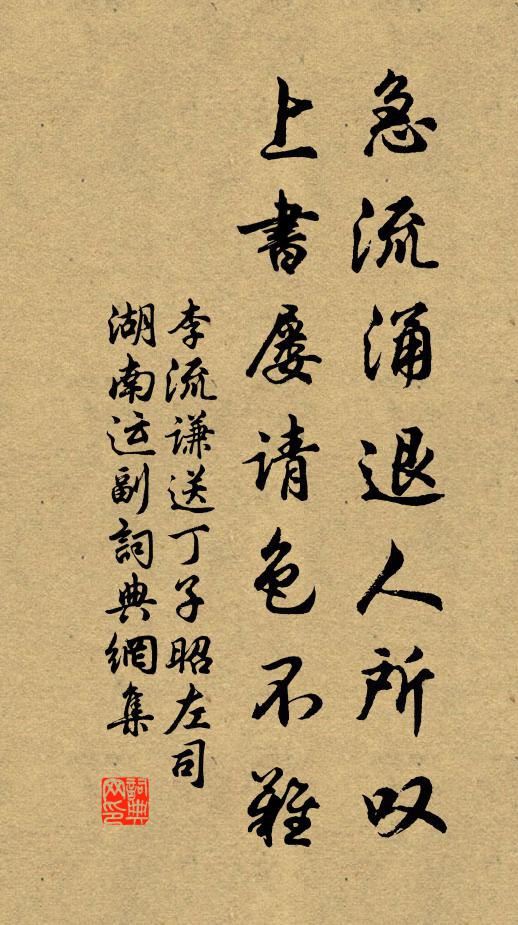 急流涌退人所叹
上書屡请色不難
李流谦送丁子昭左司
湖南运副詞典網集
詞典网印